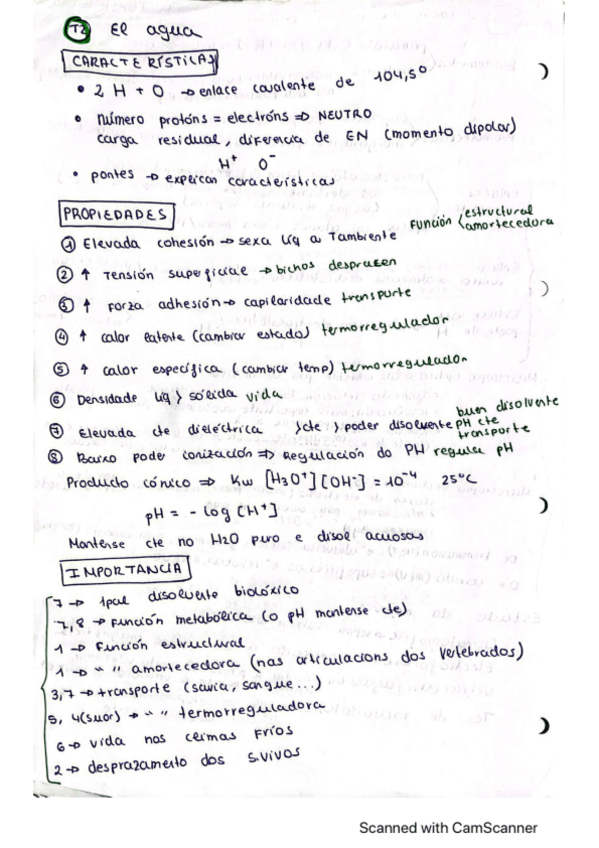 T2 El agua
CARACTERÍSTICAS
• 2 H + O → enlace covalente de 104,5º
• número protóns = electróns => NEUTRO
carga residual, diferencia de EN (momento dipolar)
H⁺ O⁻
• pontes → explican características
PROPIEDADES
① Elevada cohesión → sexa líq a Tambiente FUNCIÓN < estructural amortecedora
② ↑ Tensión superficial → bichos desprazen
③ ↑ forza adhesión → capilaridade transporte
④ ↑ calor latente (cambiar estado) termorregulador
⑤ ↑ calor específica (cambiar temp) termorregulador
⑥ Densidade líq } sólida vida
⑦ Elevada cte dieléctrica } cte } poder disolvente buen disolvente PH cte transporte
⑧ Baixo poder ionización => Regulación do PH regula pH
Producto iónico => Kw [H3O⁺][OH⁻] = 10⁻⁴ 25ºC
pH = - log [H⁺]
Mantense cte no H2O puro e disol acuosas
IMPORTANCIA
7 → 1pal disolvente biolóxico
7,8 → Función metabólica (o pH mantense cte)
1 → Función estructural
1 → " " amortecedora (nas articulacions dos vertebrados)
3,7 → transporte (savia, sangue...)
5, 4(suor) → " " termorreguladora
6 → vida nos climas fríos
2 → desprazamento dos s.vivos
Scanned with CamScanner